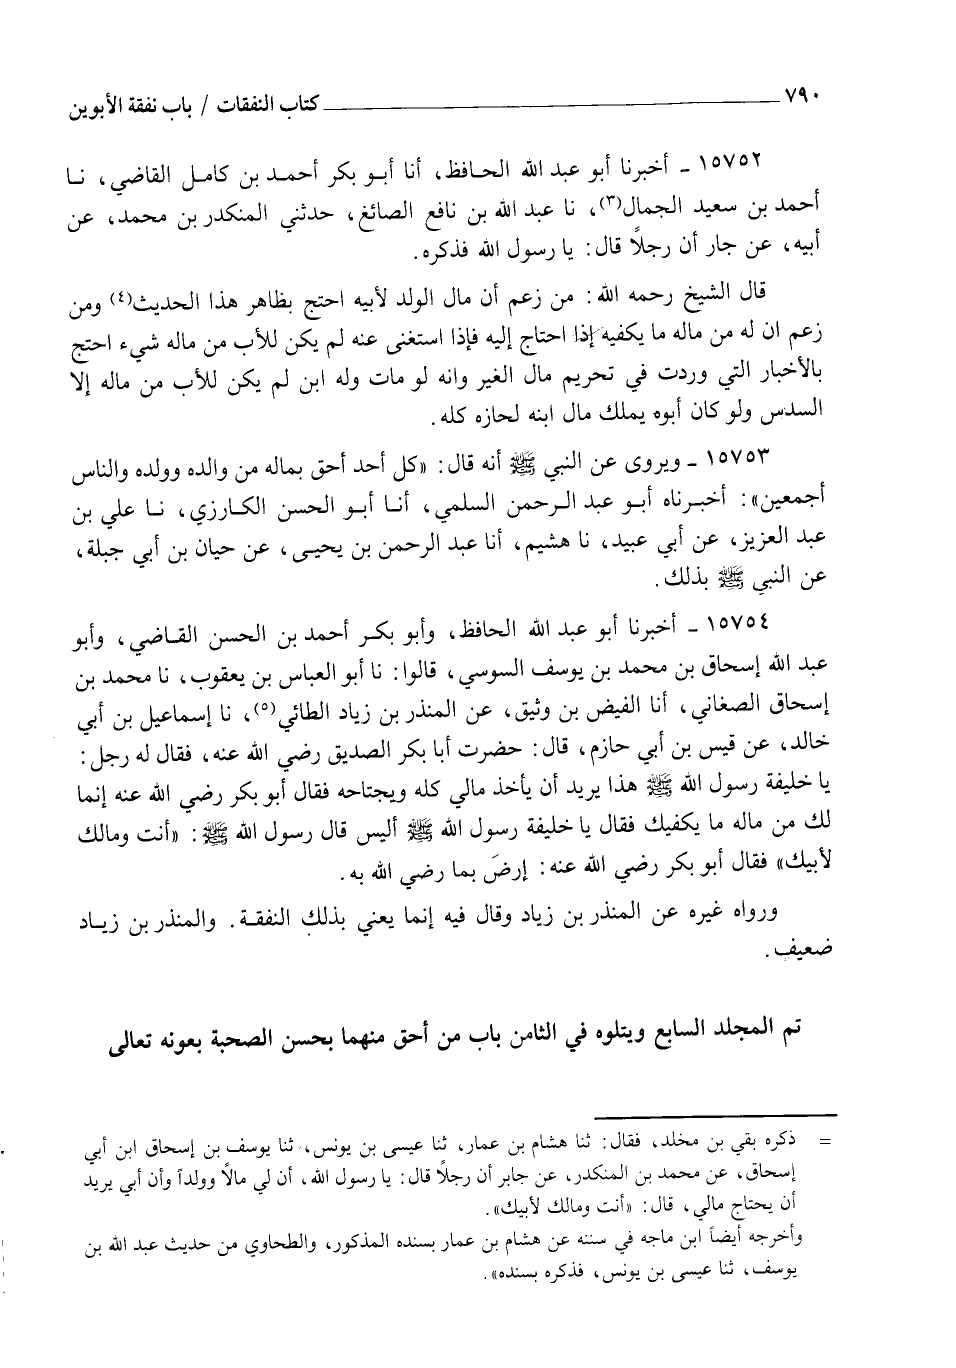 ٧٩٠ كتاب النفقات / باب نفقة الأبوين
١٥٧٥٢ ـ أخبرنا أبو عبد الله الحافظ، أنا أبو بكر أحمد بن كامل القاضي، نا
أحمد بن سعيد الجمال(٣)، نا عبد الله بن نافع الصائغ، حدثني المنكدر بن محمد، عن
أبيه، عن جار أن رجلاً قال: يا رسول الله فذكره.
قال الشيخ رحمه الله: من زعم أن مال الولد لأبيه احتج بظاهر هذا الحديث(٤) ومن
زعم ان له من ماله ما يكفيه إذا احتاج إليه فإذا استغنى عنه لم يكن للأب من ماله شيء احتج
بالأخبار التي وردت في تحريم مال الغير وانه لو مات وله ابن لم يكن للأب من ماله إلا
السدس ولو كان أبوه يملك مال ابنه لحازه كله.
١٥٧٥٣ ـ ويروى عن النبي ﷺ أنه قال: «كل أحد أحق بماله من والده وولده والناس
أجمعين»: أخبرناه أبو عبد الرحمن السلمي، أنا أبو الحسن الكارزي، نا علي بن
عبد العزيز، عن أبي عبيد، نا هشيم، أنا عبد الرحمن بن يحيى، عن حيان بن أبي جبلة،
عن النبي ﷺ بذلك.
١٥٧٥٤ ـ أخبرنا أبو عبد الله الحافظ، وأبو بكر أحمد بن الحسن القاضي، وأبو
عبد الله إسحاق بن محمد بن يوسف السوسي، قالوا: نا أبو العباس بن يعقوب، نا محمد بن
إسحاق الصغاني، أنا الفيض بن وثيق، عن المنذر بن زياد الطائي(٥)، نا إسماعيل بن أبي
خالد، عن قيس بن أبي حازم، قال: حضرت أبا بكر الصديق رضي الله عنه، فقال له رجل:
يا خليفة رسول الله ﷺ هذا يريد أن يأخذ مالي كله ويجتاحه فقال أبو بكر رضي الله عنه إنما
لك من ماله ما يكفيك فقال يا خليفة رسول الله ﷺ أليس قال رسول الله ﷺ: «أنت ومالك
لأبيك» فقال أبو بكر رضي الله عنه: إرضَ بما رضي الله به.
ورواه غيره عن المنذر بن زياد وقال فيه إنما يعني بذلك النفقة. والمنذر بن زياد
ضعيف.
تم المجلد السابع ويتلوه في الثامن باب من أحق منهما بحسن الصحبة بعونه تعالى
= ذكره بقي بن مخلد، فقال: ثنا هشام بن عمار، ثنا عيسى بن يونس، ثنا يوسف بن إسحاق ابن أبي
إسحاق، عن محمد بن المنكدر، عن جابر أن رجلاً قال: يا رسول الله، أن لي مالاً وولداً وأن أبي يريد
أن يحتاج مالي، قال: «أنت ومالك لأبيك».
وأخرجه أيضاً ابن ماجه في سننه عن هشام بن عمار بسنده المذكور، والطحاوي من حديث عبد الله بن
يوسف، ثنا عيسى بن يونس، فذكره بسنده».